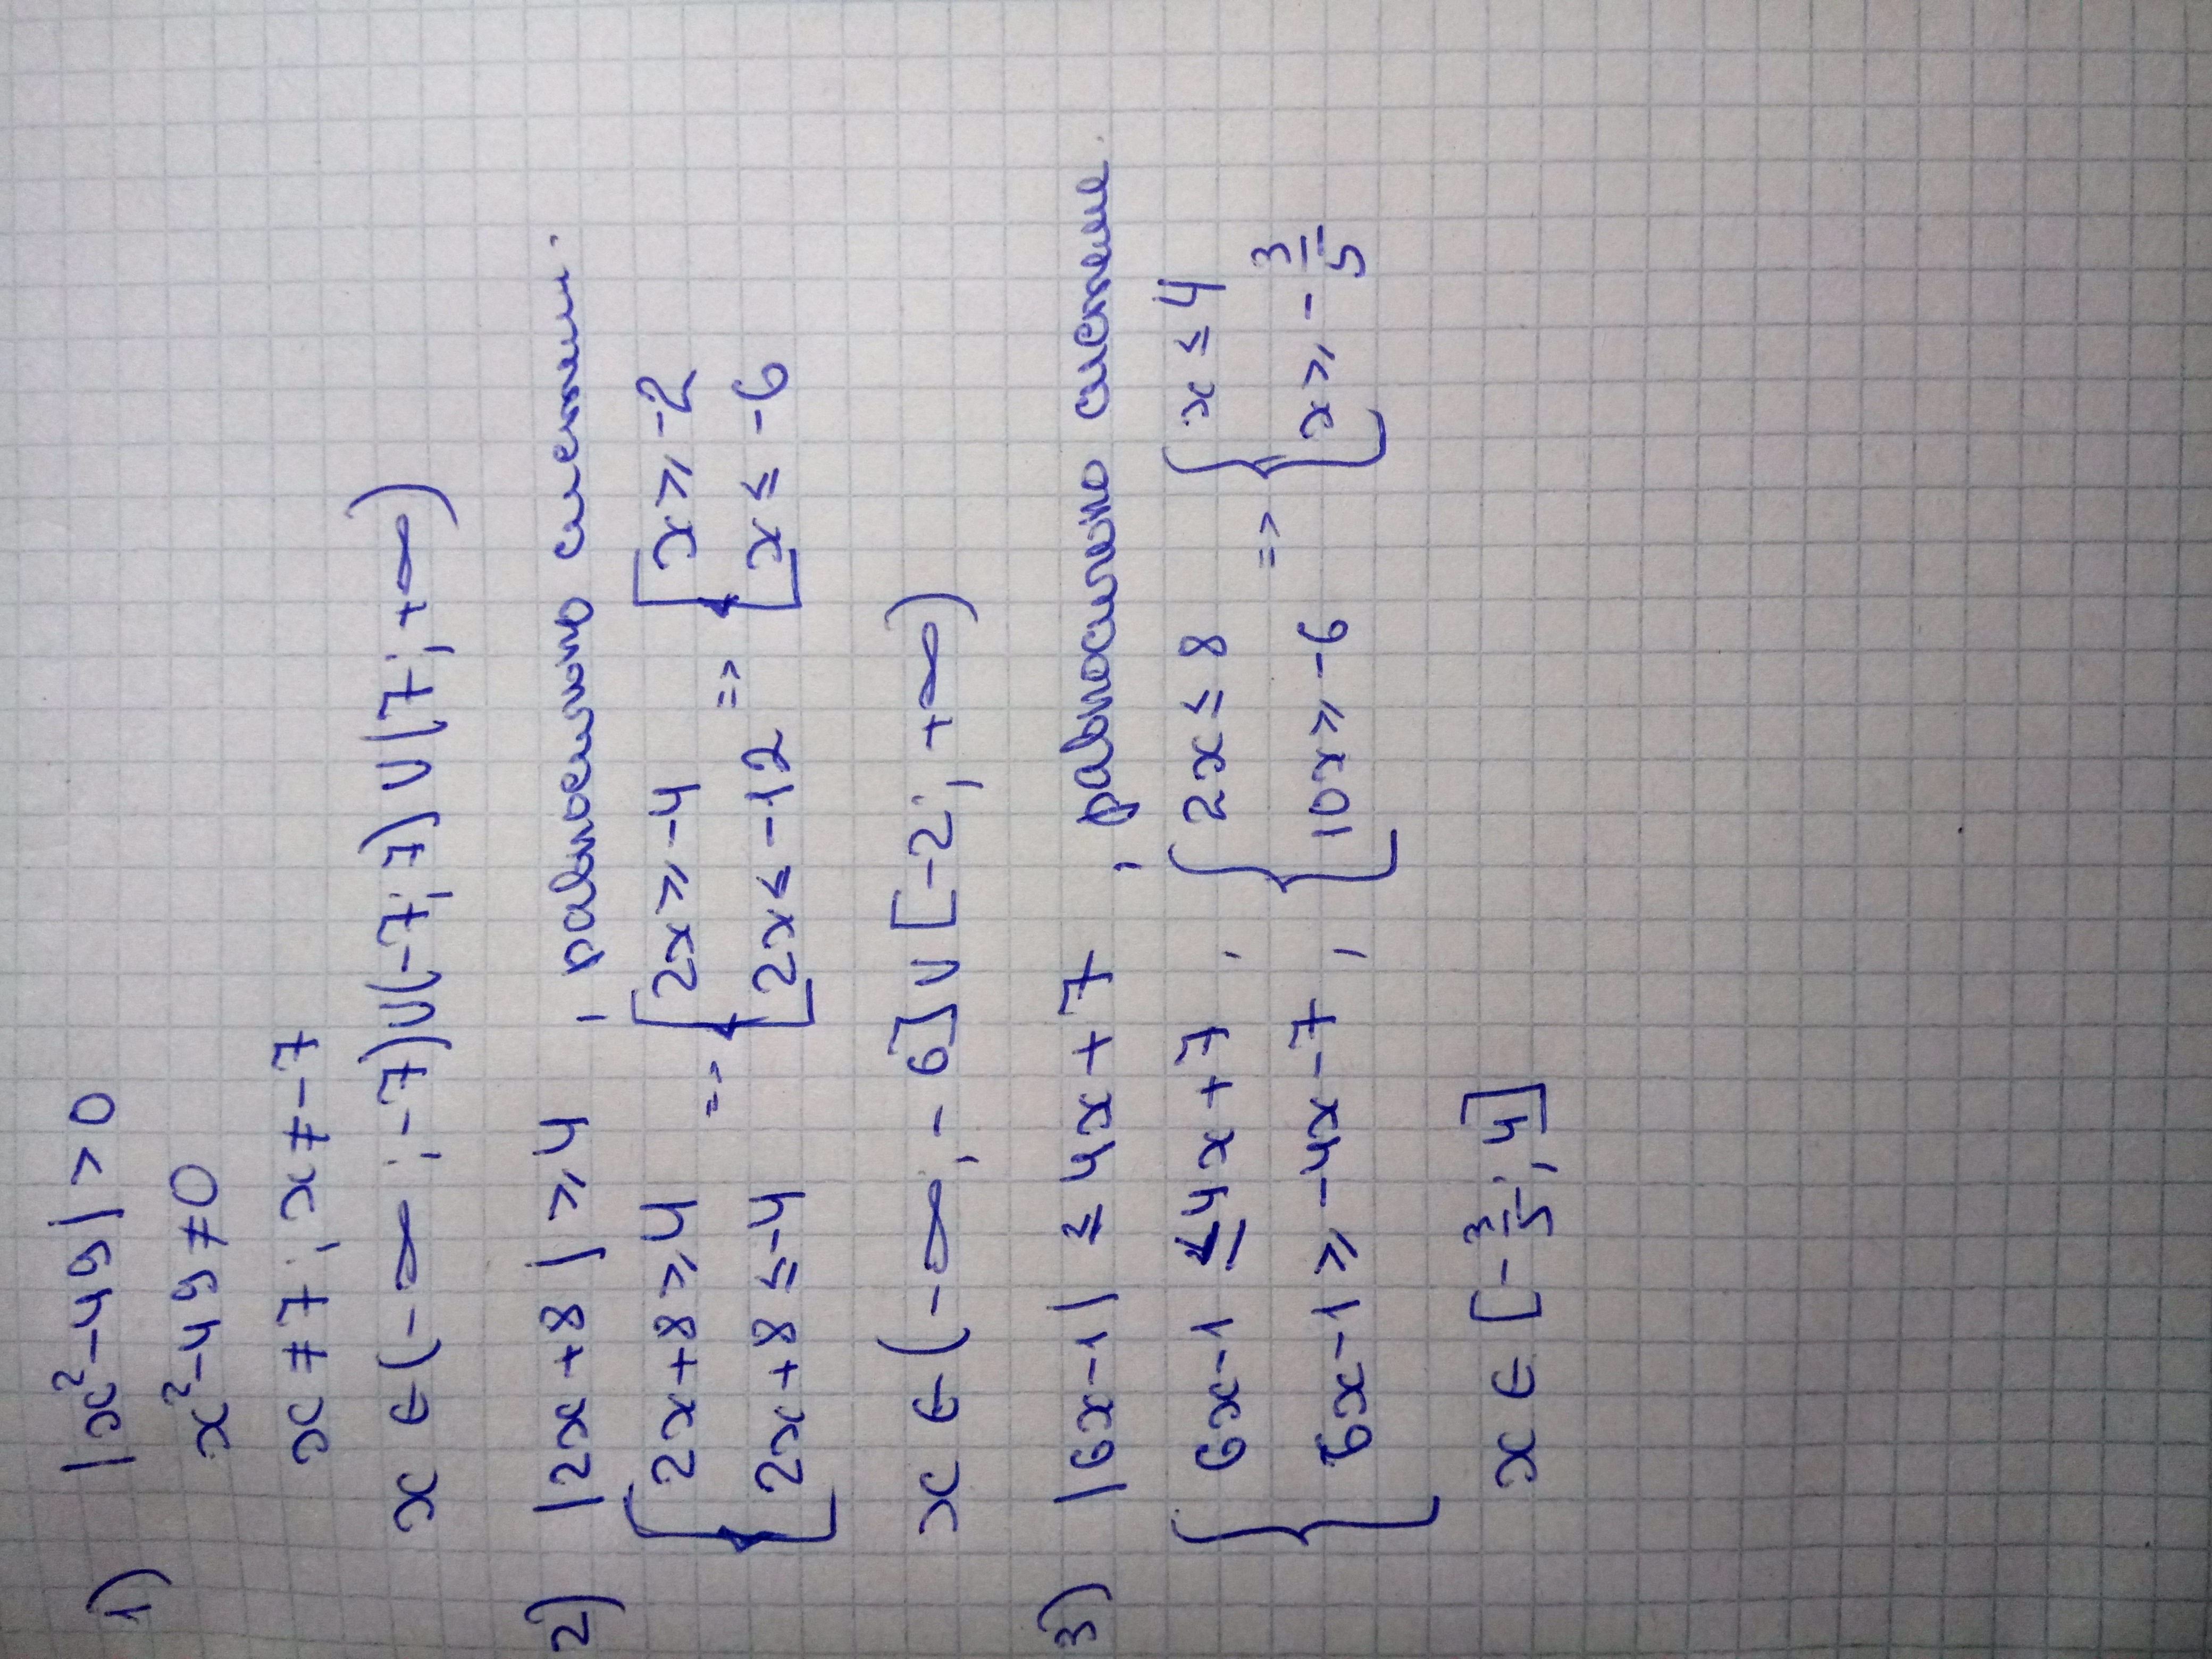 1) |x²-49|>0
x²-49≠0
x≠7; x≠-7
x∈(-∞;-7)∪(-7;7)∪(7;+∞)
2) |2x+8|≥4, равносильно системе.
[2x+8≥4 => [2x≥-4 => [x≥-2
[2x+8≤-4 [2x≤-12 [x≤-6
x∈(-∞;-6]∪[-2;+∞)
3) |6x-1|≤4x+7, равносильно системе.
{6x-1≤4x+7, {2x≤8 => {x≤4
{6x-1≥-4x-7, {10x≥-6 {x≥-3/5
x∈[-3/5;4]